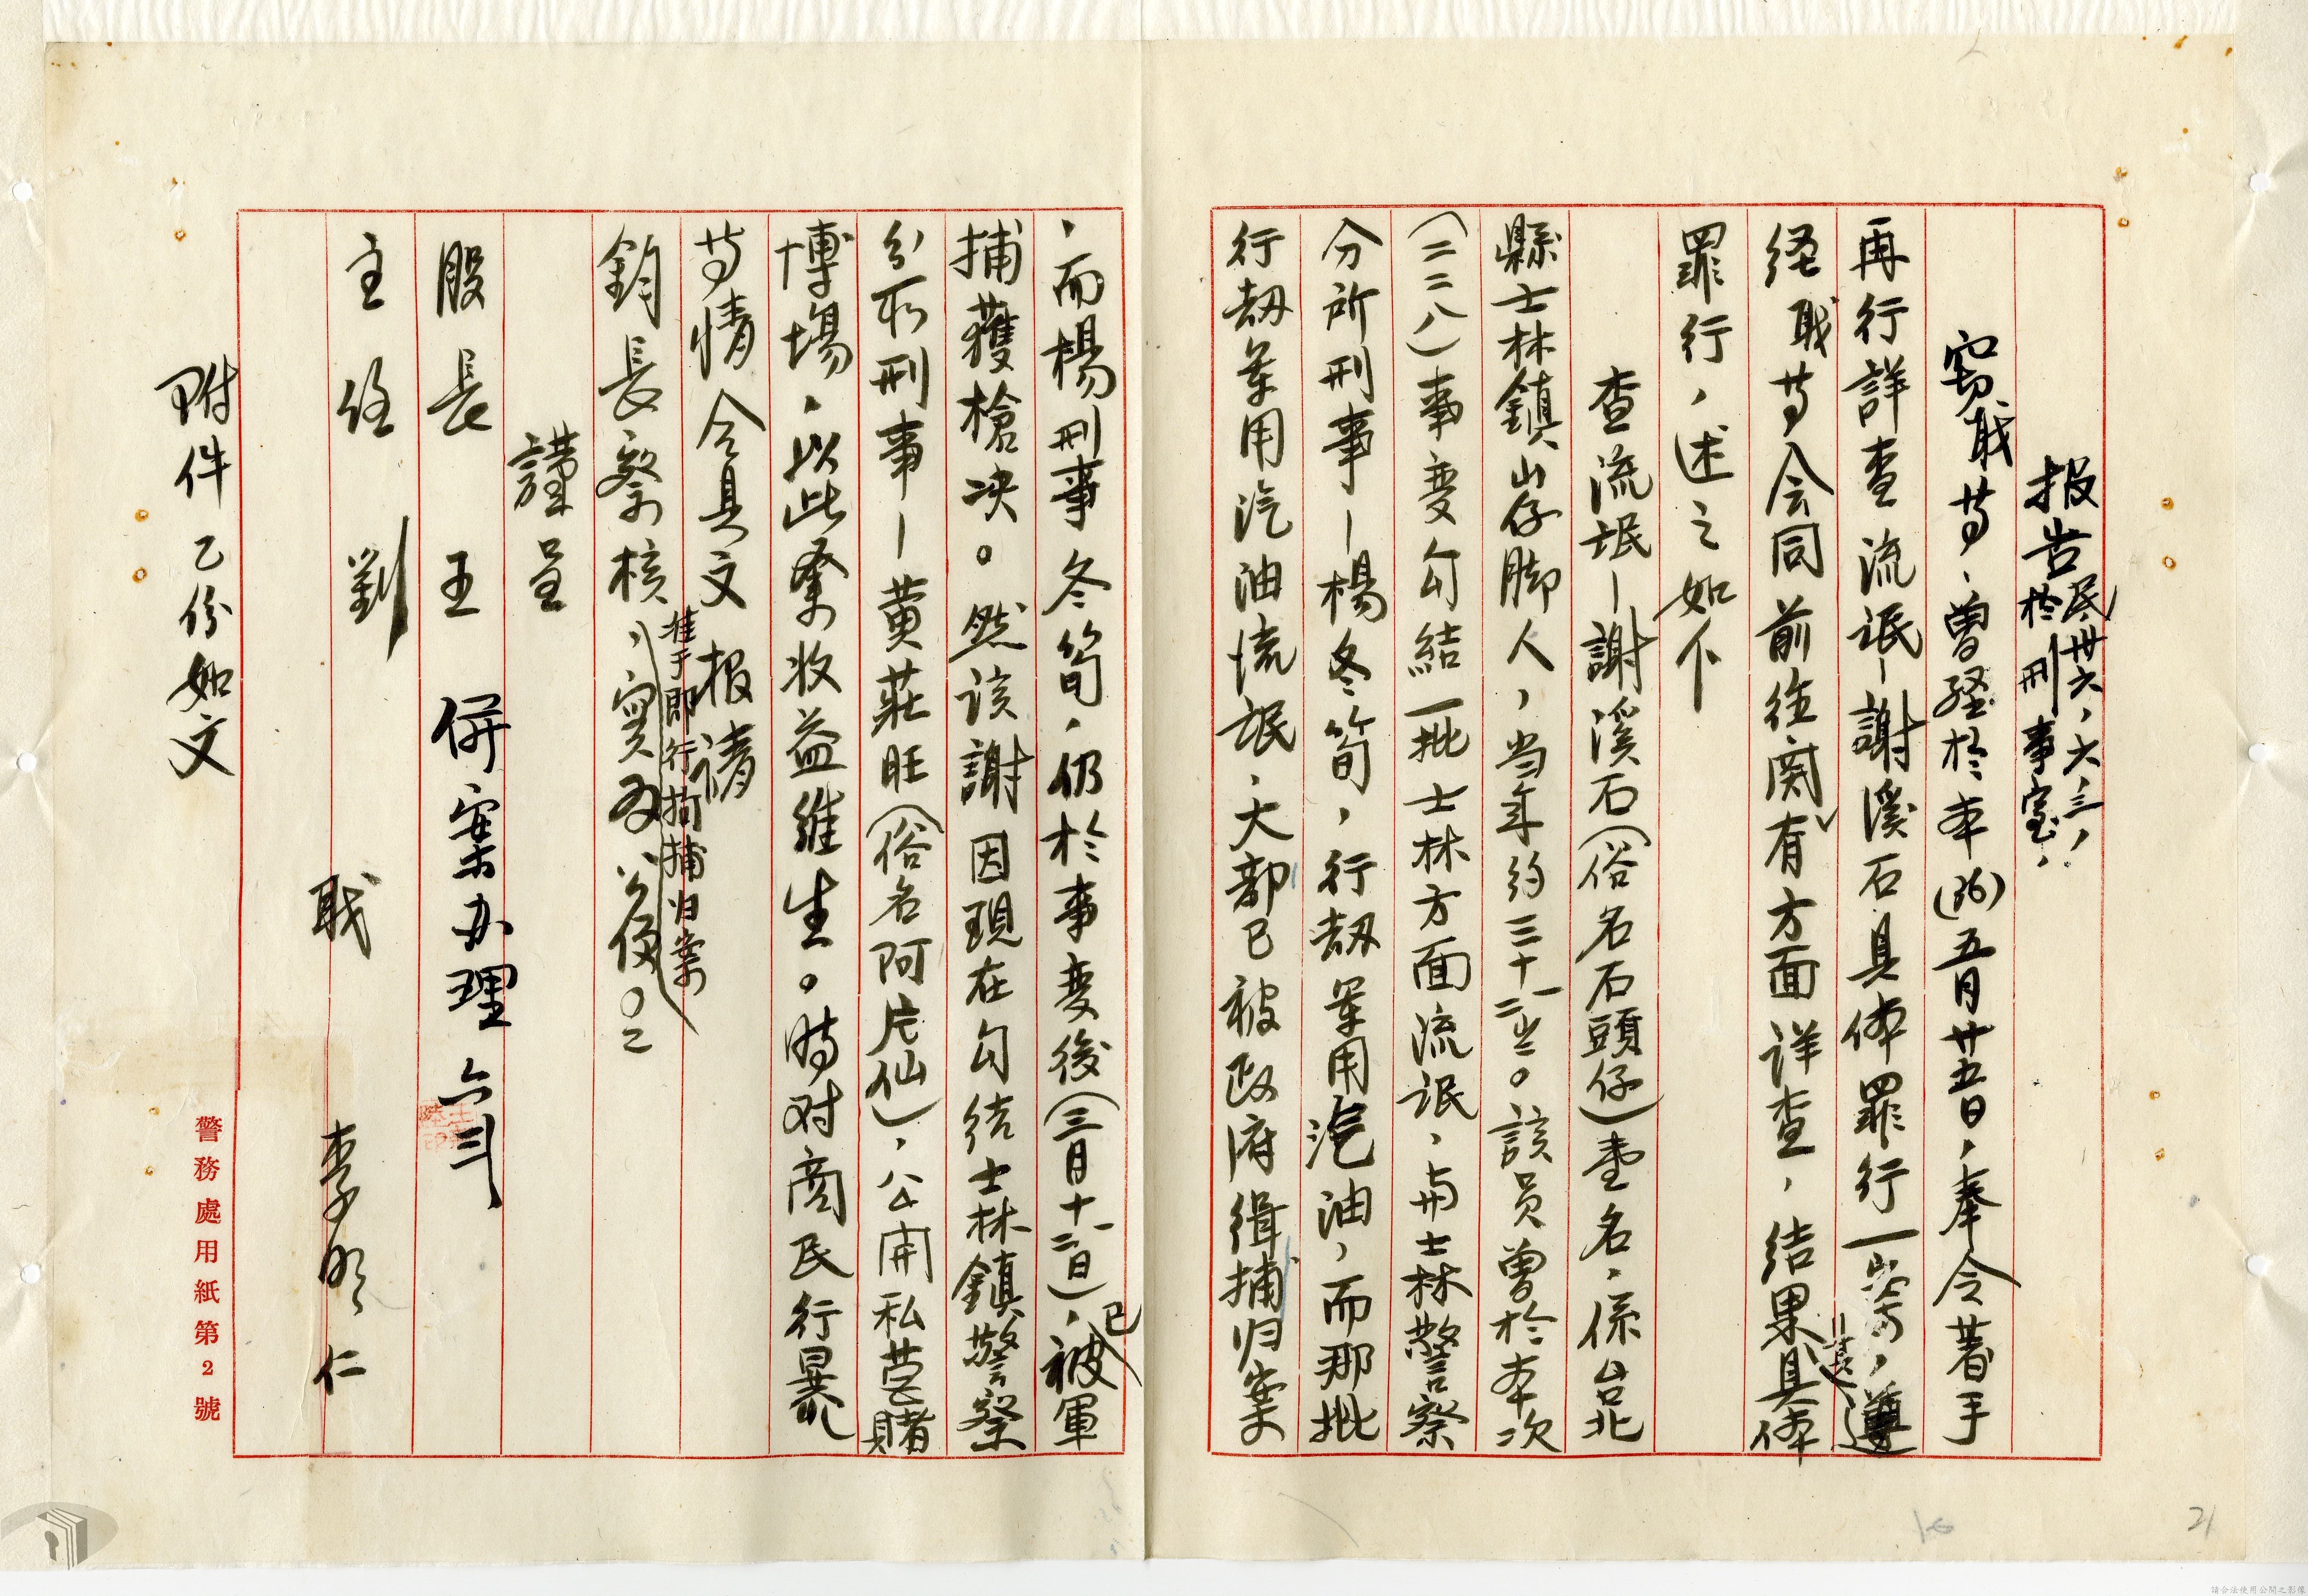 报告 民卅六,六,三,
於刑事室,
窃职等、曾経於本(36)五月廿五日,奉令著手
再行詳查流氓-謝溪石具体罪行一案,遵
经职等会同前往関有方面详查,结果具体
罪行,述之如下
查流氓-謝溪石(俗名石頭仔)壹名,係台北
縣士林鎮山仔脚人,当年約三十一二岁。該員曾於本次
(二二八)事变勾結一批士林方面流氓,与士林警察
分所刑事-楊冬筍,行刼軍用汽油,而那批
行刼軍用汽油流氓,大部已被政府缉捕归案
,而楊刑事冬筍,仍於事变後(三月十一二日),已被軍
捕獲槍决。然该謝因現在勾结士林鎮警察
分所刑事-黄莊旺(俗名阿片仙),公開私营賭
博場,以此聚收益維生。時对商民行暴
等情 令具文 报請
鈞長察核,准予即行拘捕归案,实为公便。
謹呈
股長 王 併案办理 六三
主任 劉
职 李明仁
附件乙份如文
警務處用紙第2號
21
請合法使用公開之影像